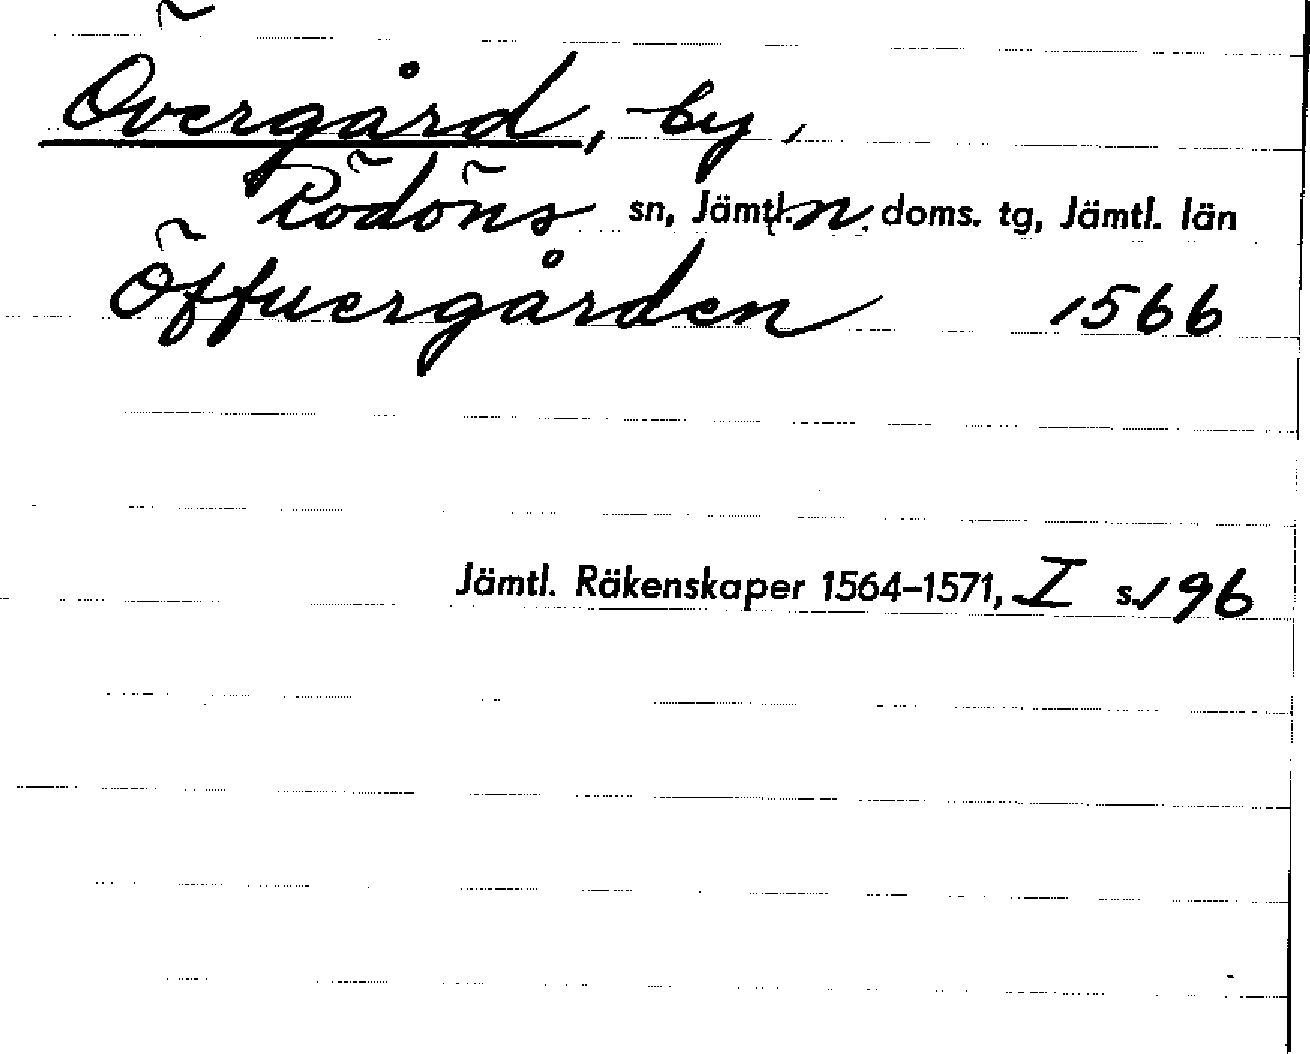 Övergård, by,
Rödöns sn, Jämtl. n. doms. tg, Jämtl. län
Öffuergården 1566
Jämtl. Räkenskaper 1564–1571, I s. 196